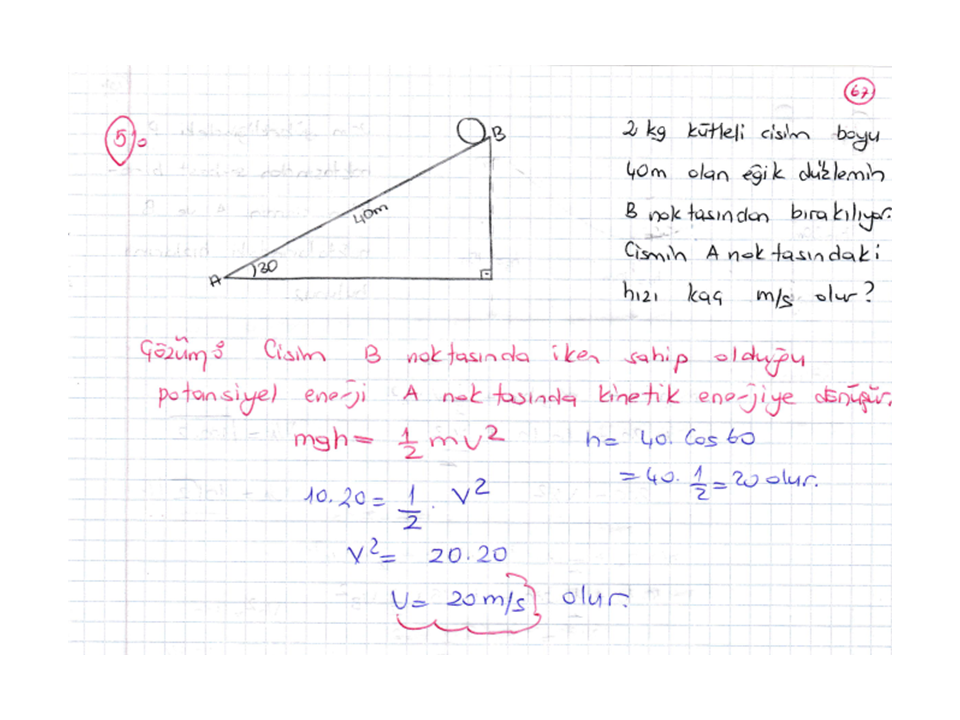 67
5)%
B
40m
A
30
2 kg kütleli cisim boyu
40m olan eğik düzlemin
B noktasından bırakılıyor.
Cismin A noktasındaki
hızı kaç m/s olur?
Çözüm: Cisim B noktasında iken sahip olduğu
potansiyel enerji A noktasında kinetik enerjiye dönüşür.
mgh = 1/2 mv²
h = 40. Cos 60
= 40. 1/2 = 20 olur.
10.20 = 1/2 . V²
V² = 20.20
V = 20 m/s olur.